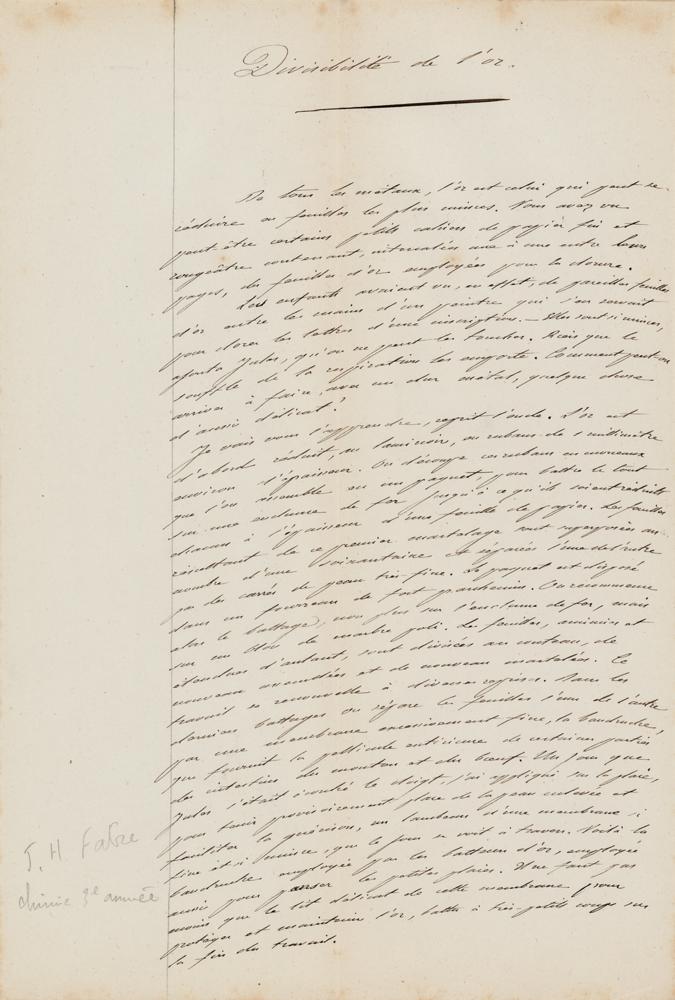 Divisibilité de l'or.
De tous les métaux, l'or est celui qui peut se
réduire en feuilles les plus minces. Vous avez vu
peut-être certains petits cahiers de papier fin et
rougeâtre contenant, intercalées une à une entre leurs
pages, des feuilles d'or employées pour la dorure.
Les enfants avaient vu, en effet, de pareilles feuilles
d'or entre les mains d'un peintre qui s'en servait
pour dorer les lettres d'une inscription. — Elles sont si minces,
ajouta Jules, qu'on ne peut les toucher. Rien que le
souffle de la respiration les emporte. Comment peut-on
arriver à faire, avec un dur métal, quelque chose
d'aussi délicat?
Je vais vous l'apprendre, reprit l'oncle. L'or est
d'abord réduit, au laminoir, en rubans de 1 millimètre
environ d'épaisseur. On découpe ces rubans en morceaux
que l'on assemble en un paquet, pour battre le tout
sur une enclume de fer jusqu'à ce qu'ils soient réduits
chacun à l'épaisseur d'une feuille de papier. Les feuilles
résultant de ce premier martelage sont superposées au
nombre d'une soixantaine et séparées l'une de l'autre
par des carrés de peau très-fine. Le paquet est disposé
dans un fourreau de fort parchemin. On recommence
alors le battage, non plus sur l'enclume de fer, mais
sur un bloc de marbre poli. Les feuilles, amincies et
étendues d'autant, sont divisées au couteau, de
nouveau amassées et de nouveau martelées. Ce
travail se renouvelle à diverses reprises. Dans les
derniers battages on sépare les feuilles l'une de l'autre
par une membrane excessivement fine, la baudruche,
que fournit la pellicule extérieure de certaines parties
des intestins du mouton et du bœuf. Un jour que
Jules s'était écorché le doigt, j'ai appliqué sur la plaie,
pour tenir provisoirement place de la peau enlevée et
faciliter la guérison, un lambeau d'une membrane si
fine et si mince, que le jour se voit à travers. Voilà la
baudruche employée par les batteurs d'or, employée
aussi pour panser les petites plaies. Il ne faut pas
moins que le lit délicat de cette membrane pour
protéger et maintenir l'or, battu à très-petits coups sur
la fin du travail.
J. H. Fabre
chimie 3e année